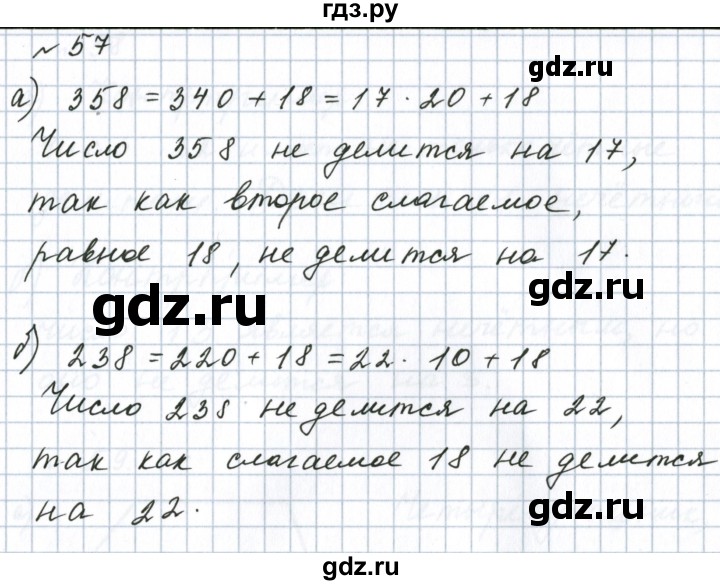 гдз.ру
№ 57
gdz.ru
а) 358 = 340 + 18 = 17 · 20 + 18
Число 358 не делится на 17,
gdz.ru
так как второе слагаемое,
равное 18, не делится на 17.
gdz.ru
gdz.ru
б) 238 = 220 + 18 = 22 · 10 + 18
Число 238 не делится на 22,
так как слагаемое 18 не делится
gdz.ru
на 22.
gdz.ru